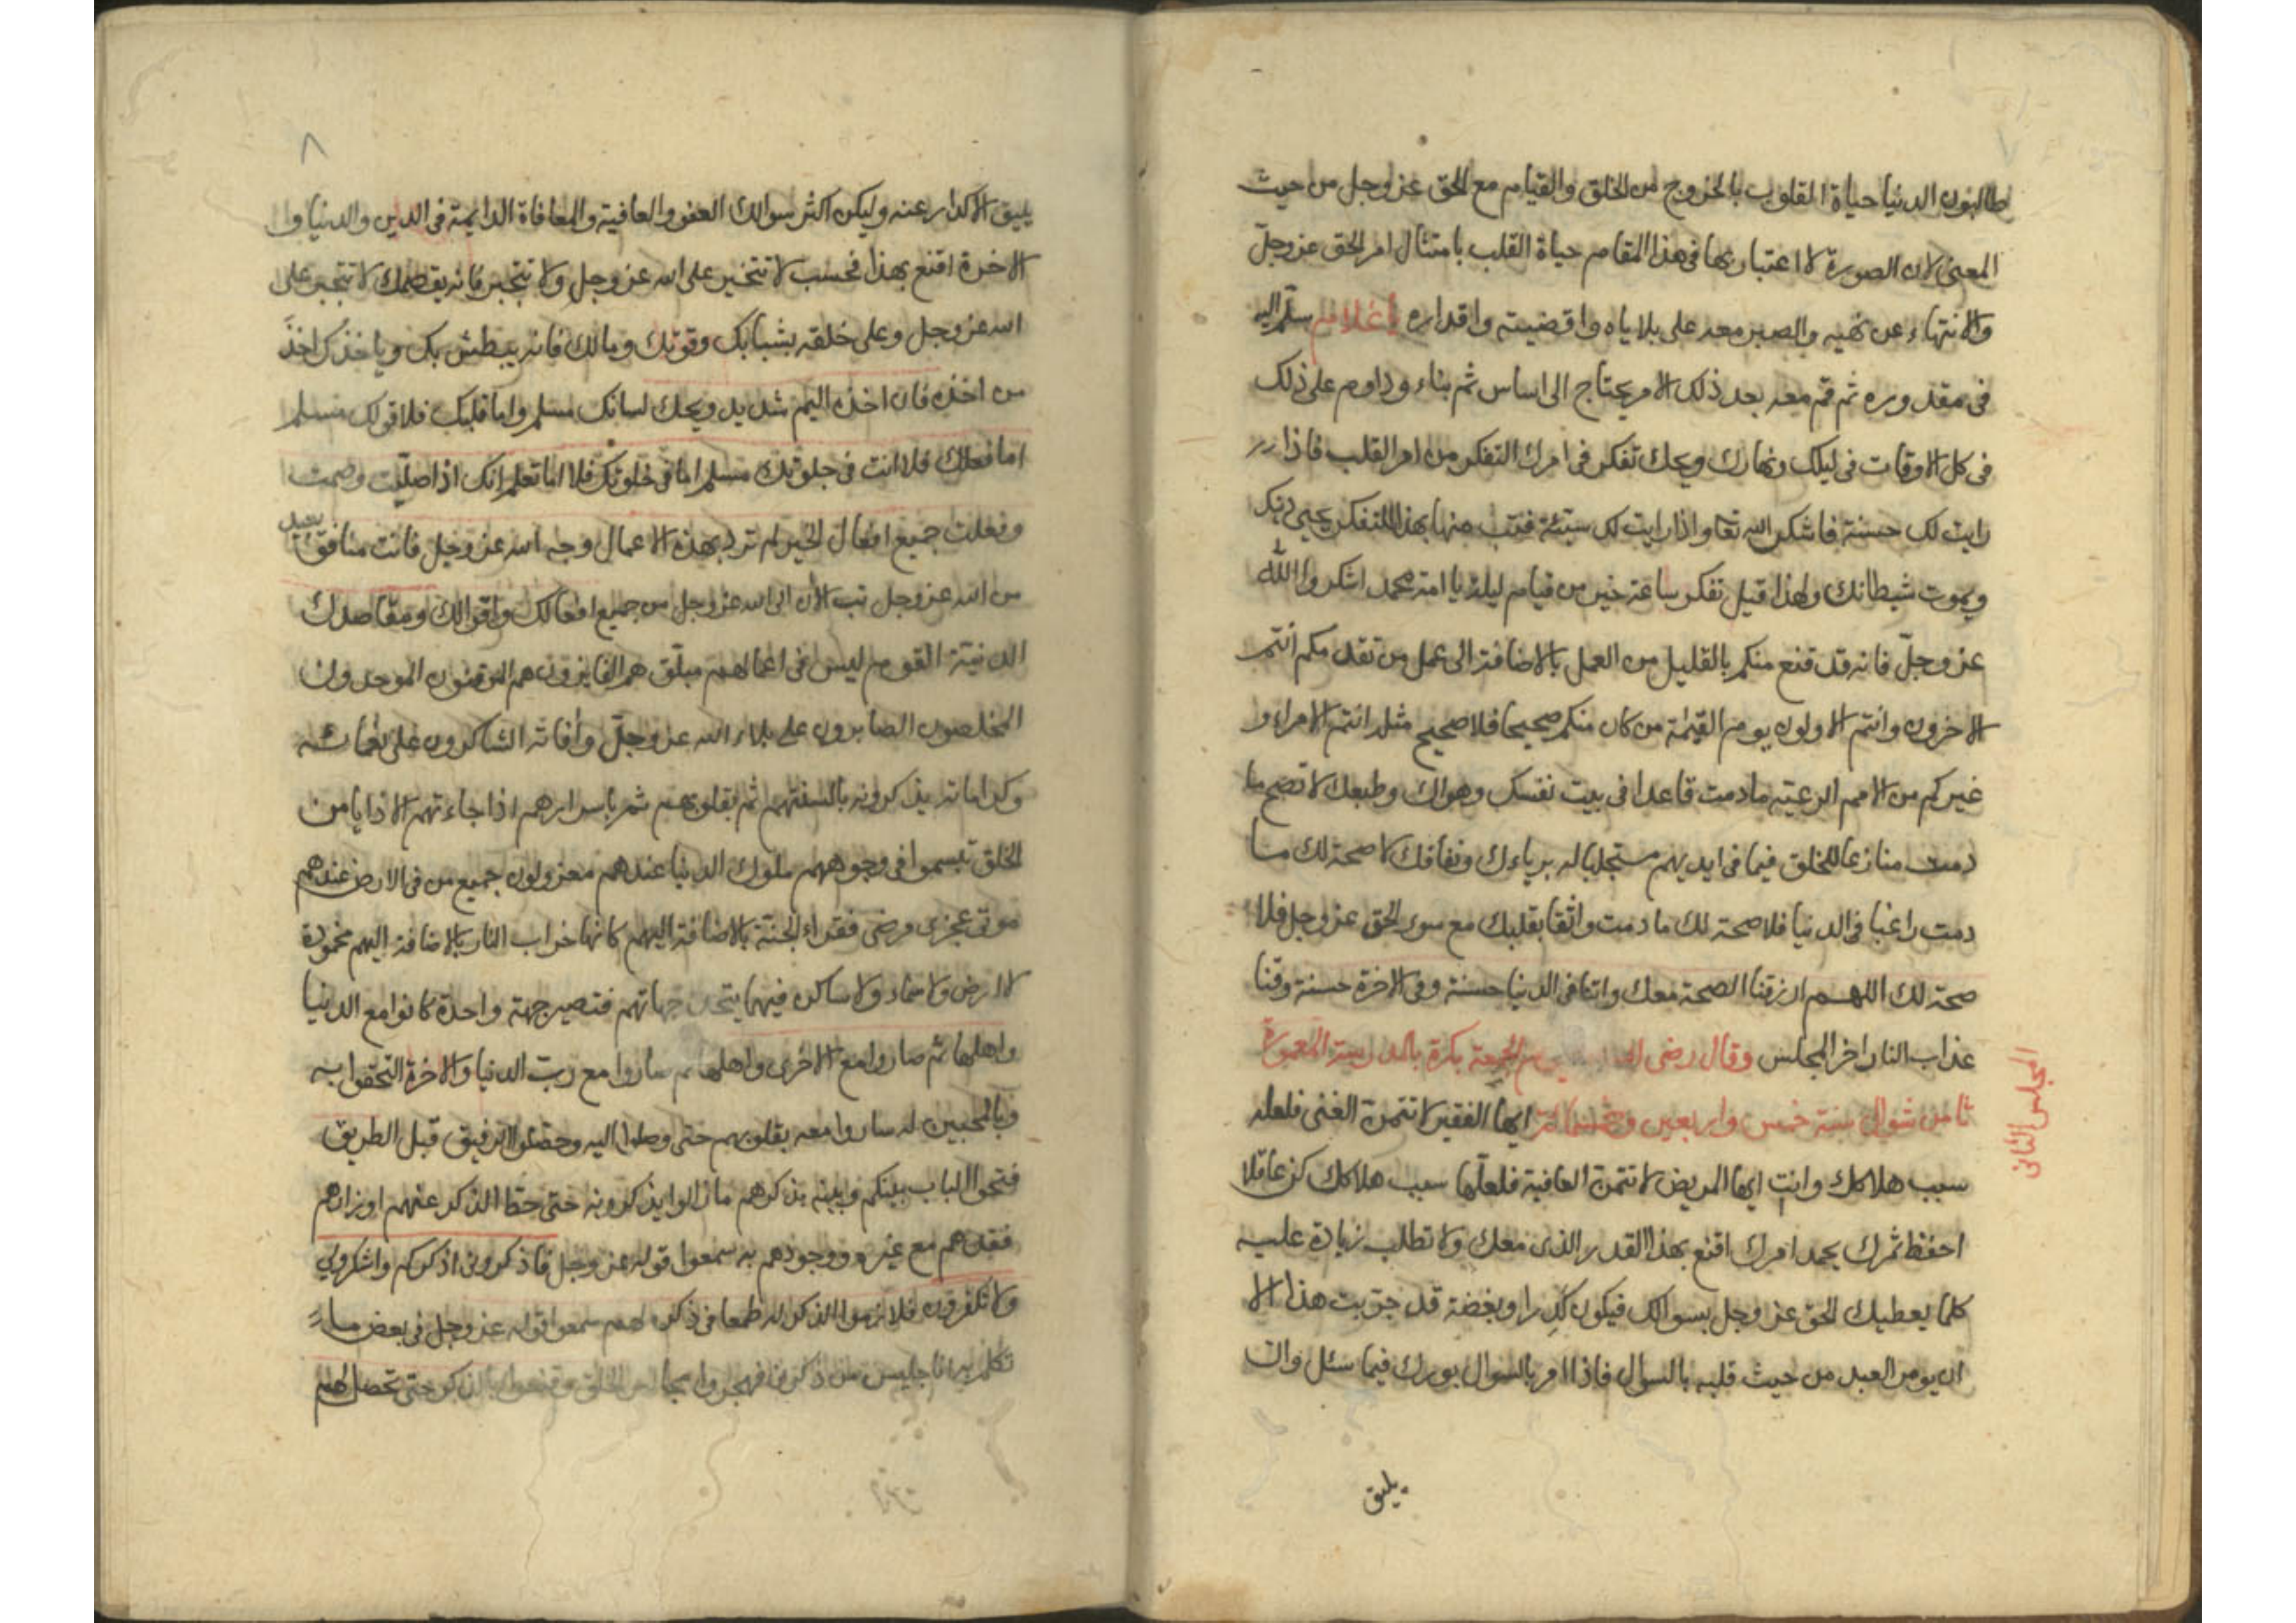 طالبون الدنيا حياة القلوب بالخروج من الخلق والقيام مع الحق عز وجل من حيث
المعنى لان الصورة لا اعتبار بها فى هذا المقام حياة القلب بامتثال امر الحق عز وجلّ
والانتهاء عن نهيه والصبر معه على بلاياه واقضيته واقداره يا غلام سلّم اليه
فى مقدوره ثم قم معه بعد ذلك الامر يحتاج الى اساس ثم بناء وداوم على ذلك
فى كل الاوقات فى ليلك ونهارك ويحك تفكر فى امرك التفكر من امر القلب فاذا
رايت لك حسنة فاشكر الله تعا واذا رايت لك سيئة فتب منها بهذا التفكر يحيى دينك
ويموت شيطانك ولهذا قيل تفكر ساعة خير من قيام ليلة يا امة محمد اشكروا الله
عز وجلّ فانه قد قنع منكم بالقليل من العمل بالاضافة الى عمل من تقدمكم انتم
الاخرون وانتم الاولون يوم القيمة من كان منكم صحيحا فلا صحيح مثله انتم الامراء و
غيركم من الامم الرعية ما دمت قاعدا فى بيت نفسك وهواك وطبعك لا تصح ما
دمت منازعا للخلق فيما فى ايديهم مستجلبا له برياءك ونفاقك لا صحة لك ما
دمت راغبا فى الدنيا فلا صحة لك ما دمت واثقا بقلبك مع سوى الحق عز وجل فلا
صحة لك اللهم ارزقنا الصحة معك واتنا فى الدنيا حسنة وفى الاخرة حسنة وقنا
عذاب النار اخر المجلس وقال رضى الله يوم الجمعة بكرة بالمدرسة المعمورة
ثامن شوال سنة خمس واربعين وخمسمائة ايها الفقير لا تتمن الغنى فلعله
المجلس الثانى
سبب هلاكك وانت ايها المريض لا تتمن العافية فلعلها سبب هلاكك كن عاقلا
احفظ ثمرك يحمد امرك اقنع بهذا القدر الذى معك ولا تطلب زيادة عليه
كلما يعطيك الحق عز وجل بسوالك فيكون كدرا وبغضة قد جربت هذا الا
ان يومر العبد من حيث قلبه بالسوال فاذا امر بالسوال بورك فيما سئل وال
يليق
٨
يليق الاكدار عنه وليكن اكثر سوالك العفو والعافية والمعافاة الدايمة فى الدين والدنيا وا
الاخرة اقنع بهذا فحسب لا تتخير على الله عز وجل ولا تتجبر فانه يقصمك لا تتجبر على
الله عز وجل وعلى خلقه بشبابك وقوتك ومالك فانه يبطش بك وياخذك اخذ
من اخذه فان اخذه اليم شديد ويحك لسانك مسلم واما قلبك فلا قولك مسلم
اما فعلك فلا انت فى جلوتك مسلم اما فى خلوتك فلا اما تعلم انك اذا صليت وصمت
وفعلت جميع افعال الخير لم ترد بهذه الاعمال وجه الله عز وجل فانت منافق بعيد
من الله عز وجل تب الان الى الله عز وجل من جميع افعالك واقوالك ومقاصدك
الدنية القوم ليس فى اعمالهم مبلق هم الفايزون هم الموقنون الموحدون
المخلصون الصابرون على بلاء الله عز وجلّ وافاته الشاكرون على نعمائه
وكراماته يذكرونه بالسنتهم ثم بقلوبهم ثم باسرارهم اذا جاءتهم الاذايا من
الخلق تبسموا فى وجوههم ملوك الدنيا عندهم معزولون جميع من فى الارض عندهم
موتى عجزى مرضى فقراء الجنة بالاضافة اليهم كانها خراب النار بالاضافة اليهم مخمودة
لا ارض ولا سماء ولا ساكن فيهما يتحد جهاتهم فتصير جهة واحدة كانوا مع الدنيا
واهلها ثم صاروا مع الاخرى واهلها ثم صاروا مع رب الدنيا والاخرة التحقوا به
وبالمحبين له ساروا معه بقلوبهم حتى وصلوا اليه وحصلوا الرفيق قبل الطريق
فتحوا الباب بينكم وبينه بذكرهم ما زالوا يذكرونه حتى حط الذكر عنهم اوزارهم
فقدهم مع غيره ووجودهم به سمعوا قوله عز وجل فاذكرونى اذكركم واشكروا لى
ولا تكفرون فلازموا الذكر له طمعا فى ذكره لهم سمعوا قوله عز وجل فى بعض ما
تكلم به انا جليس من ذكرنى فهجروا الخلق وقنعوا بالذكر حتى تحصل لهم